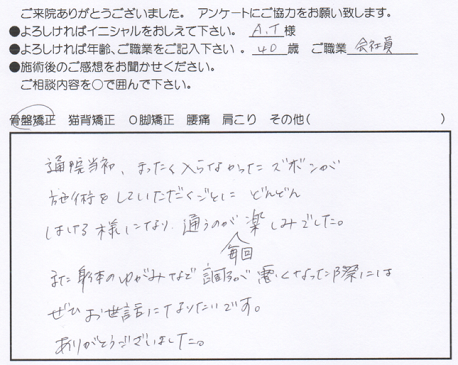 ご来院ありがとうございました。 アンケートにご協力をお願い致します。
●よろしければイニシャルをおしえて下さい。 A.T 様
●よろしければ年齢、ご職業をご記入下さい。 40 歳 ご職業 会社員
●施術後のご感想をお聞かせください。
ご相談内容を○で囲んで下さい。
骨盤矯正 猫背矯正 O脚矯正 腰痛 肩こり その他( )
通院当初、まったく入らなかったズボンが
施術をしていただくごとに どんどん
はける様になり、通うのが毎回楽しみでした。
また身体のゆがみなどで調子が悪くなった際には
ぜひお世話になりたいです。
ありがとうございました。